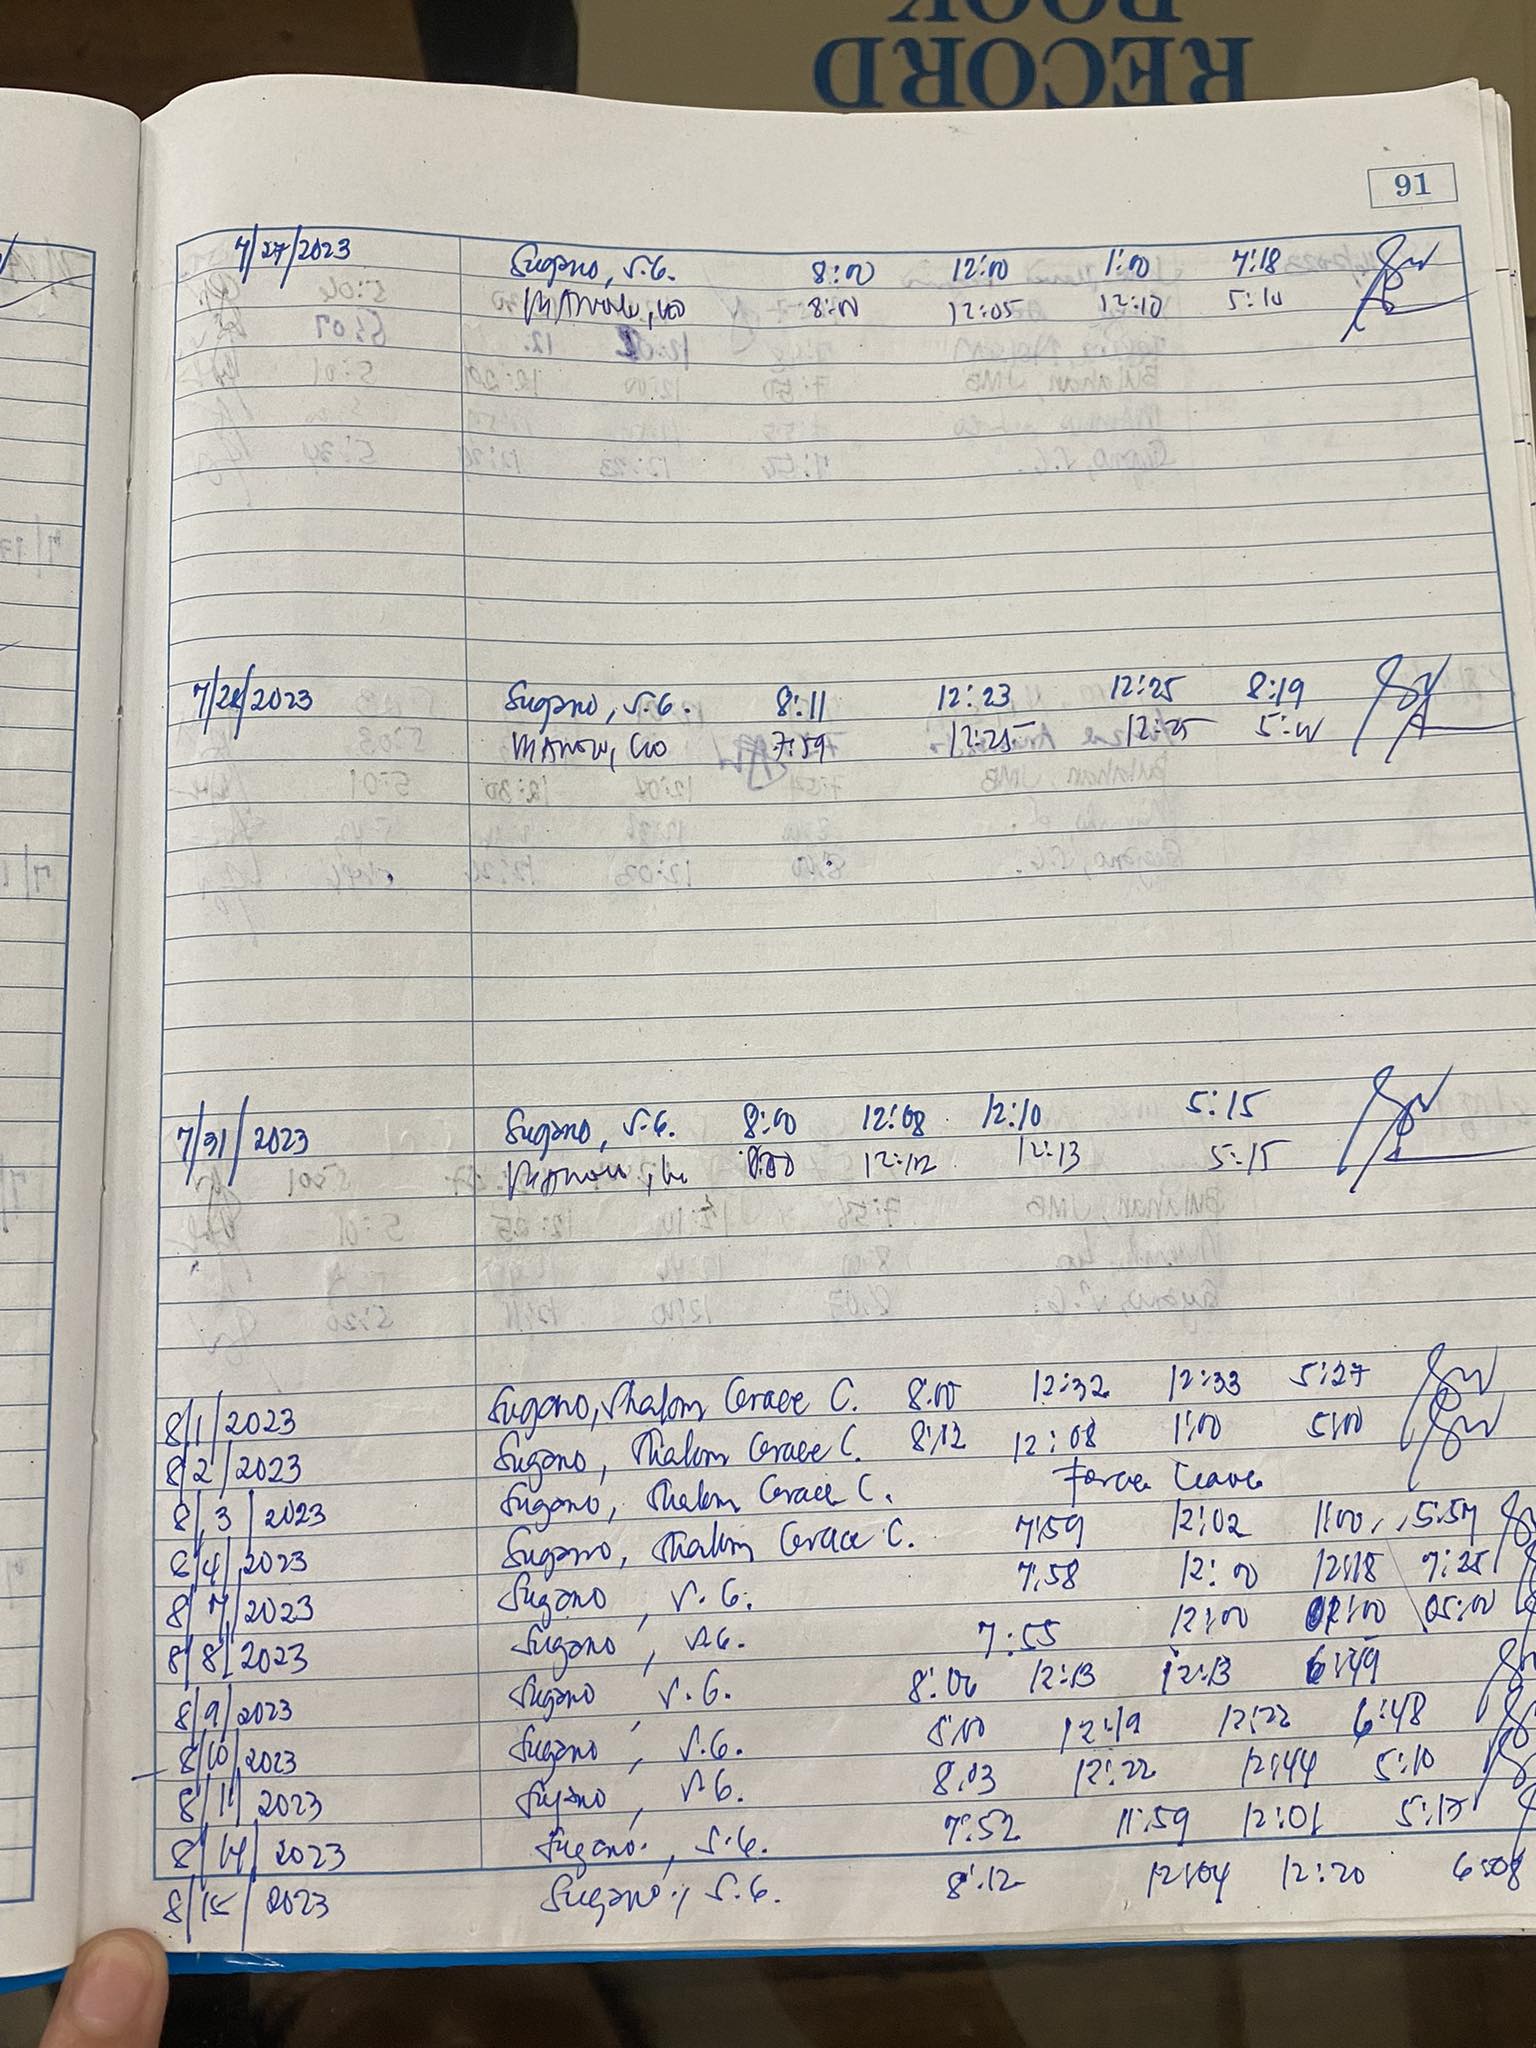 RECORD
BOOK
91
7/27/2023 Sugano, S.G. 8:00 12:00 1:00 7:18
8:00 12:05 12:10 5:10
7/28/2023 Sugano, S.G. 8:11 12:23 12:25 8:19
7:59 12:25 12:25
7/31/2023 Sugano, S.G. 8:00 12:08 12:10 5:15
8:00 12:12 12:13 5:15
8/1/2023 Sugano, Shalom Grace C. 8:00 12:32 12:33 5:27
8/2/2023 Sugano, Shalom Grace C. 8:12 12:08 1:00 5:00
8/3/2023 Sugano, Shalom Grace C. Force Leave
8/4/2023 Sugano, Shalom Grace C. 7:59 12:02 1:00 5:57
8/7/2023 Sugano, S.G. 7:58 12:00 12:18 7:25
8/8/2023 Sugano, S.G. 7:55 12:00 05:00
8/9/2023 Sugano, S.G. 8:06 12:13 12:13 6:49
8/10/2023 Sugano, S.G. 8:00 12:19 12:22 6:48
8/11/2023 Sugano, S.G. 8:03 12:22 12:44 5:10
8/14/2023 Sugano, S.G. 7:52 11:59 12:01
8/15/2023 Sugano, S.G. 8:12 12:04 12:20 6:08